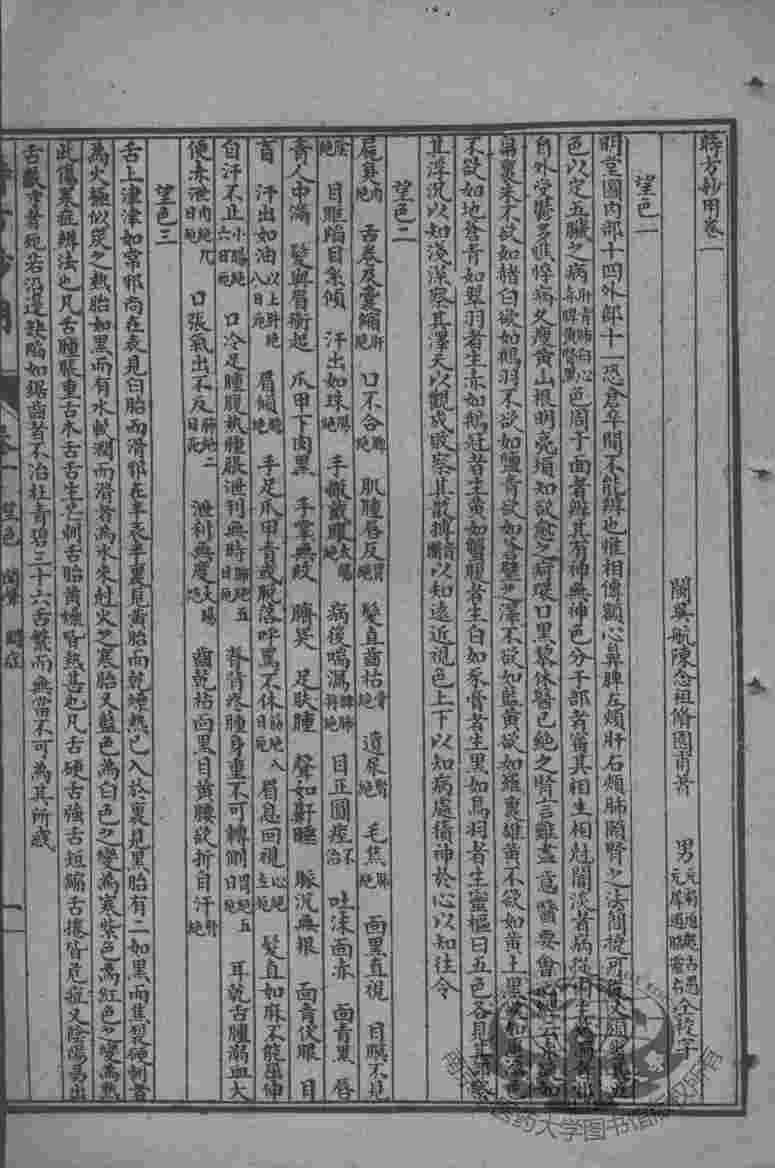 時方妙用卷一
閩吳航陳念祖修園甫著 男 元犀道彪古愚 元犀道照靈石 仝校字
望色一
明堂圖內部十四外部十一恐倉卒間不能辨也惟相傳額心鼻脾左頰肝右頰肺頤腎之法簡捷可從又須出五
色以定五臟之病肝青肺白心赤脾黃腎黑色周于面者辨其有神無神色分于部者審其相生相尅闇淡者病從內生
自外受鬱多憔悴病久瘦黃山根明亮須知欲愈之病環口黑黎休醫已絕之腎言難盡意醫要會心
帛裹朱不欲如赭白欲如鵝羽不欲如鹽青欲如蒼璧之澤不欲如藍黃欲如羅裹雄黃不欲如黃土黑欲如重漆色
不欲如地蒼青如翠羽者生赤如鷄冠者生黃如蟹腹者生白如豕膏者生黑如烏羽者生靈樞曰五色各見其部察
其浮沉以知淺深察其澤夭以觀成敗察其散搏以知遠近視色上下以知病處積神於心以知往今
望色二
屍臭肉絕 舌卷及囊縮肝絕 口不合脾絕 肌腫唇反胃絕 髮直齒枯骨絕 遺尿腎絕 毛焦肺絕 面黑直視 目瞑不見
陰絕 目眶陷目系傾 汗出如珠陽絕 手撒戴眼太陽絕 病後喘瀉脾肺將絕 目正圓痙不治 吐沫面赤 面青黑 唇
青人中滿 髮與眉衝起 爪甲下肉黑 手掌無紋 臍突 足趺腫 聲如鼾睡 脈沉無根 面青伏眼 目
盲 汗出如油以上肝絕八日死 眉傾膽絕 手足爪甲青或脫落呼罵不休筋絕八日死 眉息回視心絕立死 髮直如麻不能屈伸
自汗不止小腸絕六日死 口冷足腫腹熱臚脹泄利無時脾絕五日死 脊背疼腫身重不可轉側胃絕五日死 耳乾舌腫溺血大
便赤泄肉絕九日死 口張氣出不反肺絕二日死 泄利無度大腸絕 齒乾枯面黑目黃腰欲折自汗腎絕
望色三
舌上津津如常邪尚在表見白胎而滑邪在半表半裏見黃胎而乾燥熱已入於裏見黑胎有二如黑而焦裂硬刺者
為火極似炭之熱胎如黑而有水軟潤而滑者為水來尅火之寒胎又藍色為白色之變為寒紫色為紅色之變為熱
此傷寒症辨法也凡舌腫脹重舌木舌舌生芒刺舌胎黃燥皆熱甚也凡舌硬舌強舌短縮舌捲皆危症又陰陽易出
舌數寸者死若沿邊缺陷如鋸齒者不治杜青碧三十六舌繁而無當不可為其所惑
卷一 望色 聞聲 問症 一